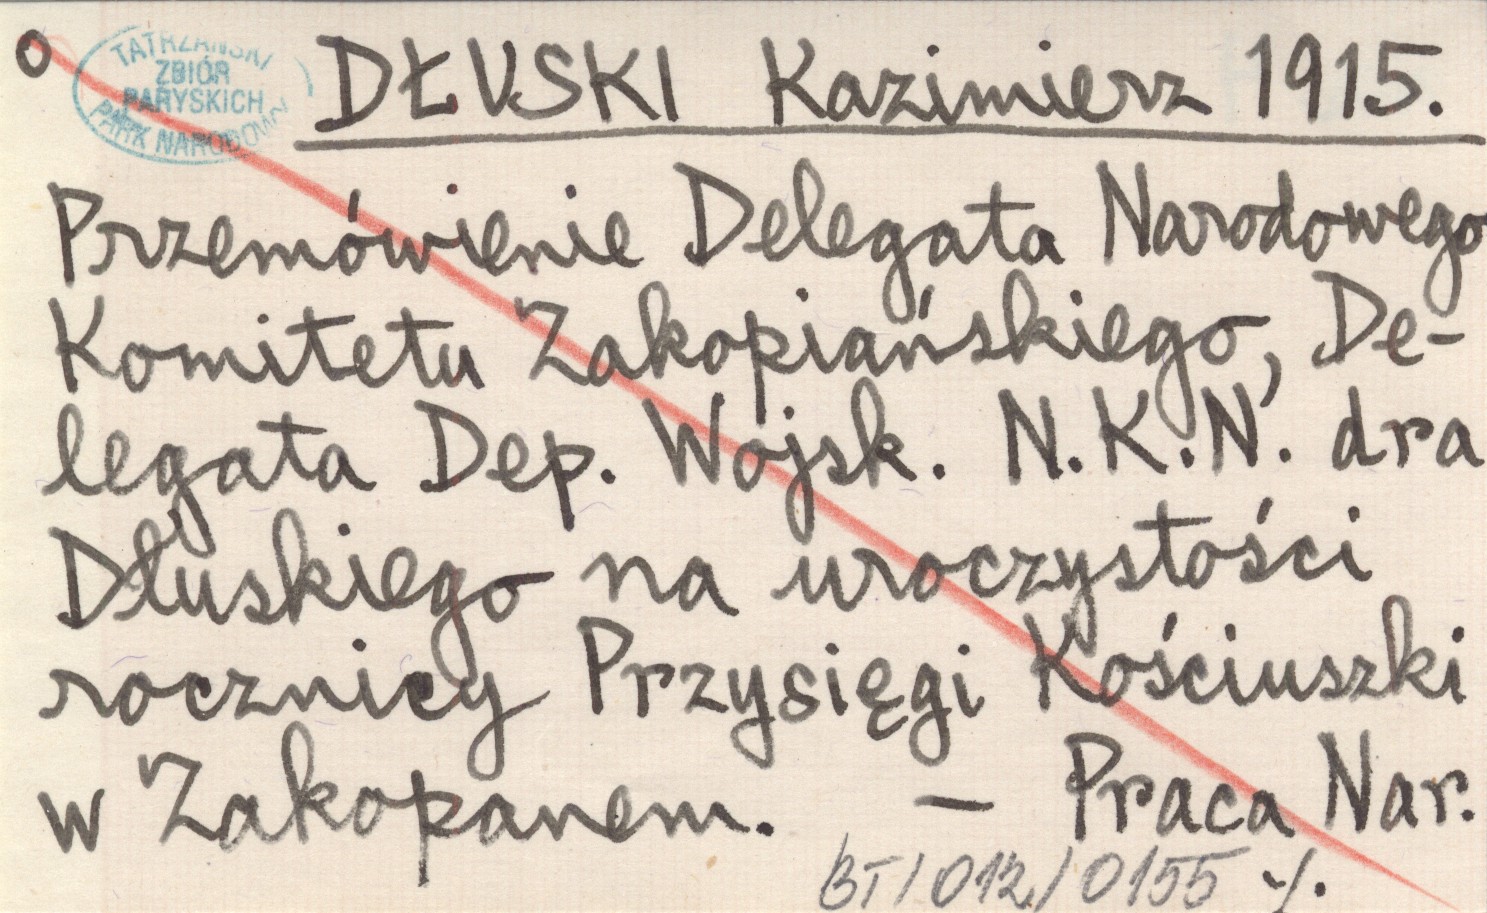 o
TATRZAŃSKI
ZBIÓR
PARYSKICH
PARK NARODOWY
DŁUSKI Kazimierz 1915.
Przemówienie Delegata Narodowego
Komitetu Zakopiańskiego, De-
legata Dep. Wojsk. N.K.N. dra
Dłuskiego na uroczystości
rocznicy Przysięgi Kościuszki
w Zakopanem. — Praca Nar.
BT/012/0155 ./.